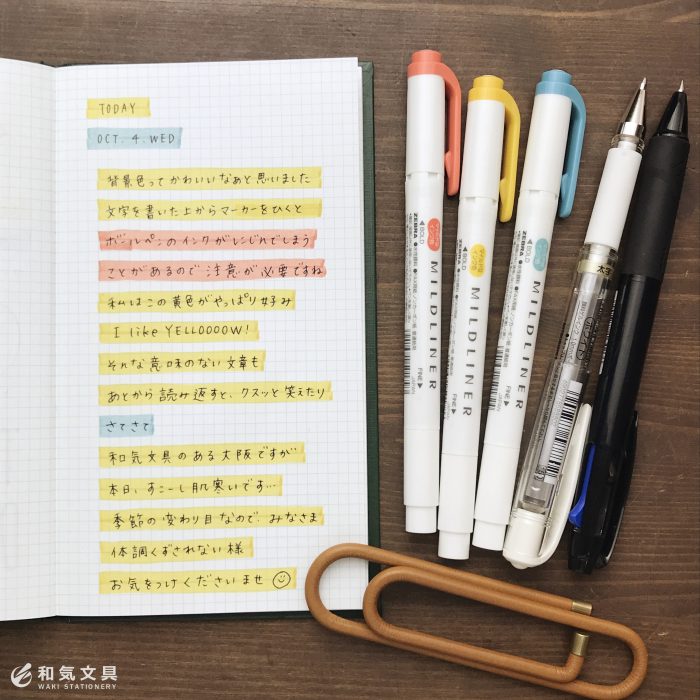 TODAY
OCT. 4. WED
背景色ってかわいいなあと思いました
文字を書いた上からマーカーをひくと
ボールペンのインクがレンじれてしまう
ことがあるので注意が必要ですね
私はこの黄色がやっぱり好み
I like YELLOOOOW!
そんな意味のない文章も
あとから読み返すと、クスッと笑えたり
さてさて
和気文具のある大阪ですが
本日、すこーし肌寒いです…
季節の変わり目なので、みなさま
体調くずされない様
お気をつけくださいませ
BOLD
ZEBRA
MILDLINER
FINE
JAPAN
BOLD
ZEBRA
MILDLINER
FINE
JAPAN
BOLD
ZEBRA
MILDLINER
FINE
JAPAN
太字
和気文具
WAKI STATIONERY